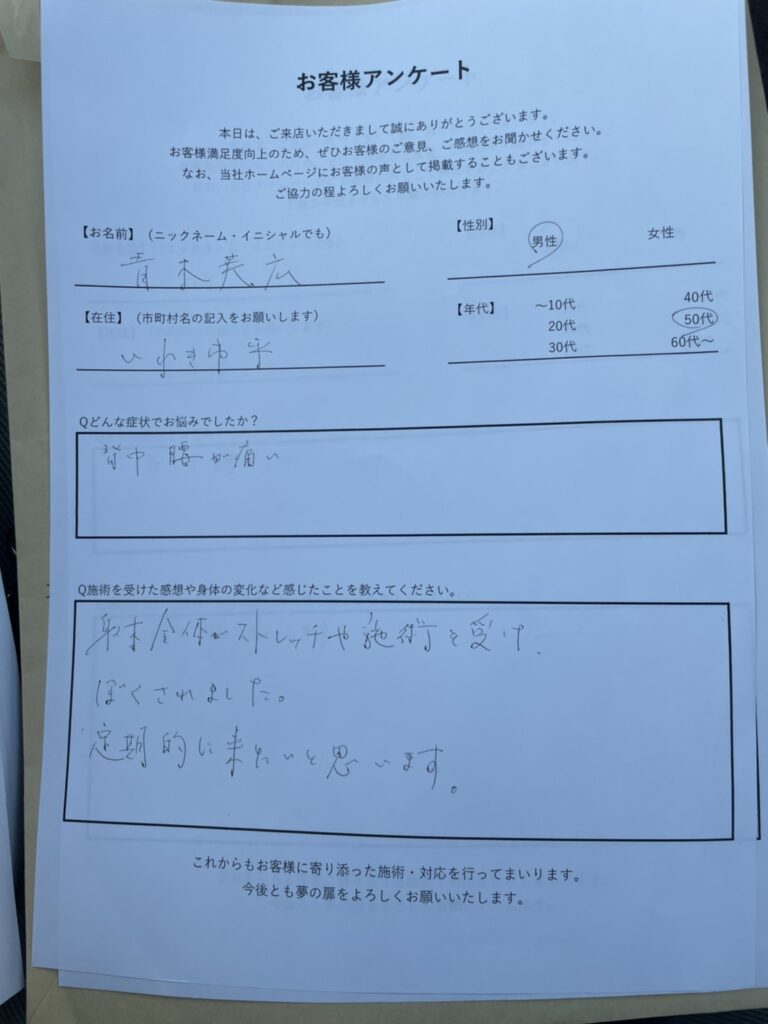 お客様アンケート
本日は、ご来店いただきまして誠にありがとうございます。
お客様満足度向上のため、ぜひお客様のご意見、ご感想をお聞かせください。
なお、当社ホームページにお客様の声として掲載することもございます。
ご協力の程よろしくお願いいたします。
【お名前】（ニックネーム・イニシャルでも）
青木英広
【性別】 男性 女性
【在住】（市町村名の記入をお願いします）
いわき市平
【年代】 〜10代 40代
20代 50代
30代 60代〜
Qどんな症状でお悩みでしたか？
背中 腰が痛い
Q施術を受けた感想や身体の変化など感じたことを教えてください。
全体がストレッチや施術を受け、
ぼくされました。
定期的に来たいと思います。
これからもお客様に寄り添った施術・対応を行ってまいります。
今後とも夢の扉をよろしくお願いいたします。